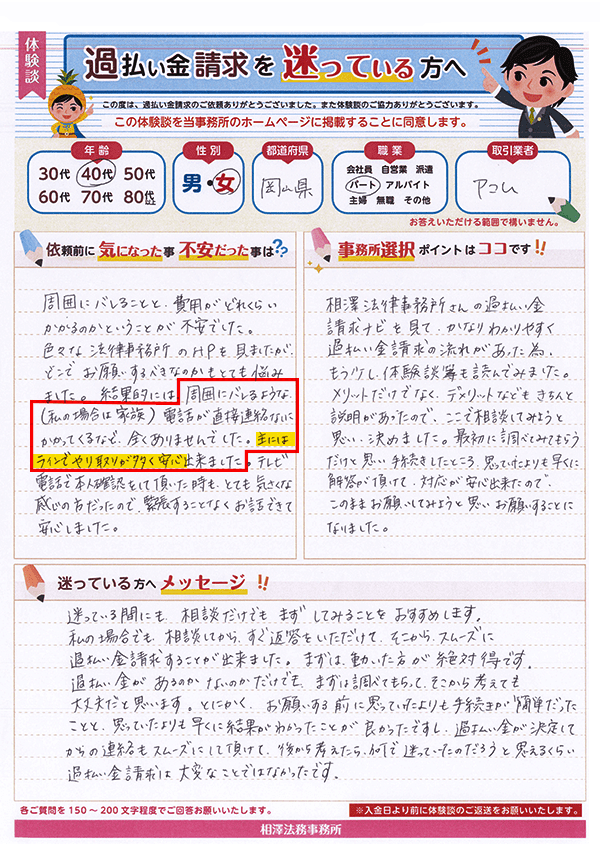 体験談
過払い金請求を迷っている方へ
この度は、過払い金請求のご依頼ありがとうございました。また体験談のご協力ありがとうございます。
この体験談を当事務所のホームページに掲載することに同意します。
年齢
30代 40代 50代
60代 70代 80代以上
性別
男・女
都道府県
岡山県
職業
会社員 自営業 派遣
パート アルバイト
主婦 無職 その他
取引業者
アコム
お答えいただける範囲で構いません。
依頼前に気になった事 不安だった事は??
周囲にバレることと、費用がどれくらい
かかるのかということが不安でした。
色々な法律事務所のHPも見ましたが、
どこでお願いするべきなのかもとても悩み
ました。結果的には、周囲にバレるような
(私の場合は家族)電話が直接連絡なしに
かかってくるなど、全くありませんでした。主には
ラインでやり取りが多く安心出来ました。テレビ
電話で本人確認をして頂いた時も、とても気さくな
感じの方だったので、緊張することなくお話できて
安心しました。
事務所選択ポイントはココです!!
相澤法律事務所さんの過払い金
請求ナビを見て、かなりわかりやすく
過払い金請求の流れがあった為、
もう少し体験談等も読んでみました。
メリットだけでなく、デメリットなどもきちんと
説明があったので、ここで相談してみようと
思い、決めました。最初に調べてみてもらう
だけと思い手続きしたところ、思っていたよりも早くに
解答が頂けて、対応が安心出来たので、
このままお願いしてみようと思いお願いすることに
なりました。
迷っている方へメッセージ!!
迷っている間にも、相談だけでもまずしてみることをおすすめします。
私の場合でも、相談してから、すぐ返答をいただけて、そこから、スムーズに
過払い金請求することが出来ました。まずは、動いた方が絶対得です。
過払い金があるのかないのかだけでも、まずは調べてもらって、そこから考えても
大丈夫だと思います。とにかく、お願いする前に思っていたよりも手続きが簡単だった
ことと、思っていたよりも早くに結果がわかったことが良かったですし、過払い金が決定して
からの連絡もスムーズにして頂けて、後から考えたら、何で迷っていたのだろうと思えるくらい
過払い金請求は大変なことではなかったです。
各ご質問を150～200文字程度でご回答お願いいたします。
※入金日より前に体験談のご返送をお願いいたします。
相澤法務事務所